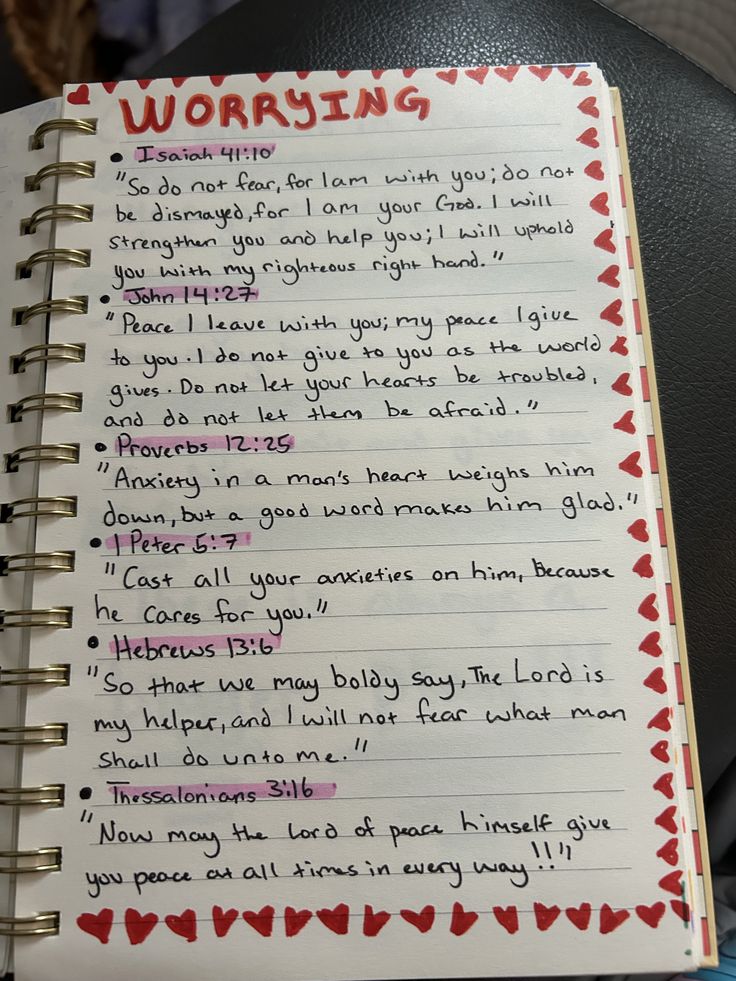 WORRYING
• Isaiah 41:10
"So do not fear, for I am with you; do not
be dismayed, for I am your God. I will
strengthen you and help you; I will uphold
you with my righteous right hand."
• John 14:27
"Peace I leave with you; my peace I give
to you. I do not give to you as the world
gives. Do not let your hearts be troubled,
and do not let them be afraid."
• Proverbs 12:25
"Anxiety in a man's heart weighs him
down, but a good word makes him glad."
• 1 Peter 5:7
"Cast all your anxieties on him, because
he cares for you."
• Hebrews 13:6
"So that we may boldy say, The Lord is
my helper, and I will not fear what man
shall do unto me."
• Thessalonians 3:16
"Now may the Lord of peace himself give
you peace at all times in every way!!"